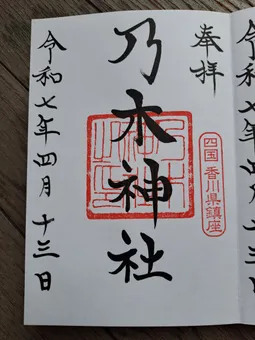 奉拝
四国 香川県鎮座
乃木神社
令和七年四月十三日